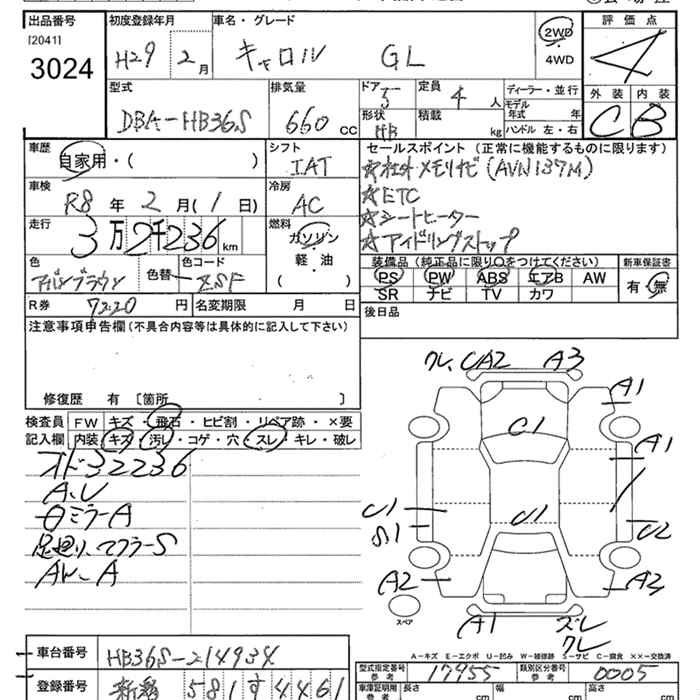 出品番号 初度登録年月 車名・グレード 評価点
[2041]
3024 H29 2月 キャロル GL 2WD 4WD 4
外装 内装
C B
型式 排気量 ドア 定員 ディーラー・並行
DBA-HB36S 660 CC 5 4人
モデル年式 年
形状 積載
HB kg ハンドル 左・右
車歴 シフト セールスポイント (正常に機能するものに限ります)
自家用・( ) IAT
☆社外メモリナビ(AVN137M)
車検 冷房 ☆ETC
R8年 2月(1日) AC ☆シートヒーター
走行 燃料 ☆アイドリングストップ
3万2千236km ガソリン・軽・油
( )
色 色替 色コード ZSF
装備品(純正品に限り〇をつけてください) 新車保証書
PS PW ABS エアB AW 有・無
SR ナビ TV カワ
R券 7220円 名変期限 月 日
後日品
注意事項申告欄(不具合内容等は具体的に記入して下さい)
修復歴 有 〔箇所 〕
検査員 FW キズ・飛石・ヒビ割・リペア跡・×要
記入欄 内装 キズ・汚レ・コゲ・穴・スレ・キレ・破レ
オド32236
A、U
ミラーA
足廻り、マフラーS
AW-A
クレ、CA2 A3
A1
C1
A1
U1
S1
U1
C2
A2
A3
スペア
A1
ズレ
クレ
A-キズ E-エクボ U-凹み W-補修跡 S-サビ C-腐食 ××-交換済
車台番号 HB36S-214934
型式指定番号 参考 17955 類別区分番号 参考 0005
登録番号 新潟 581 す 4461
車庫証明用 参考 長さ cm 幅 cm 高さ cm